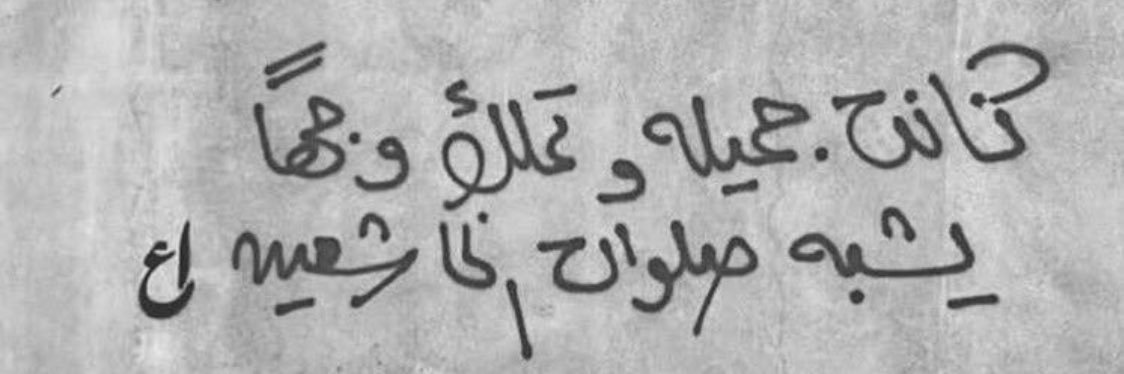 كانت جميله و تملك وجهاً
يشبه صلوات الخاشعين اع